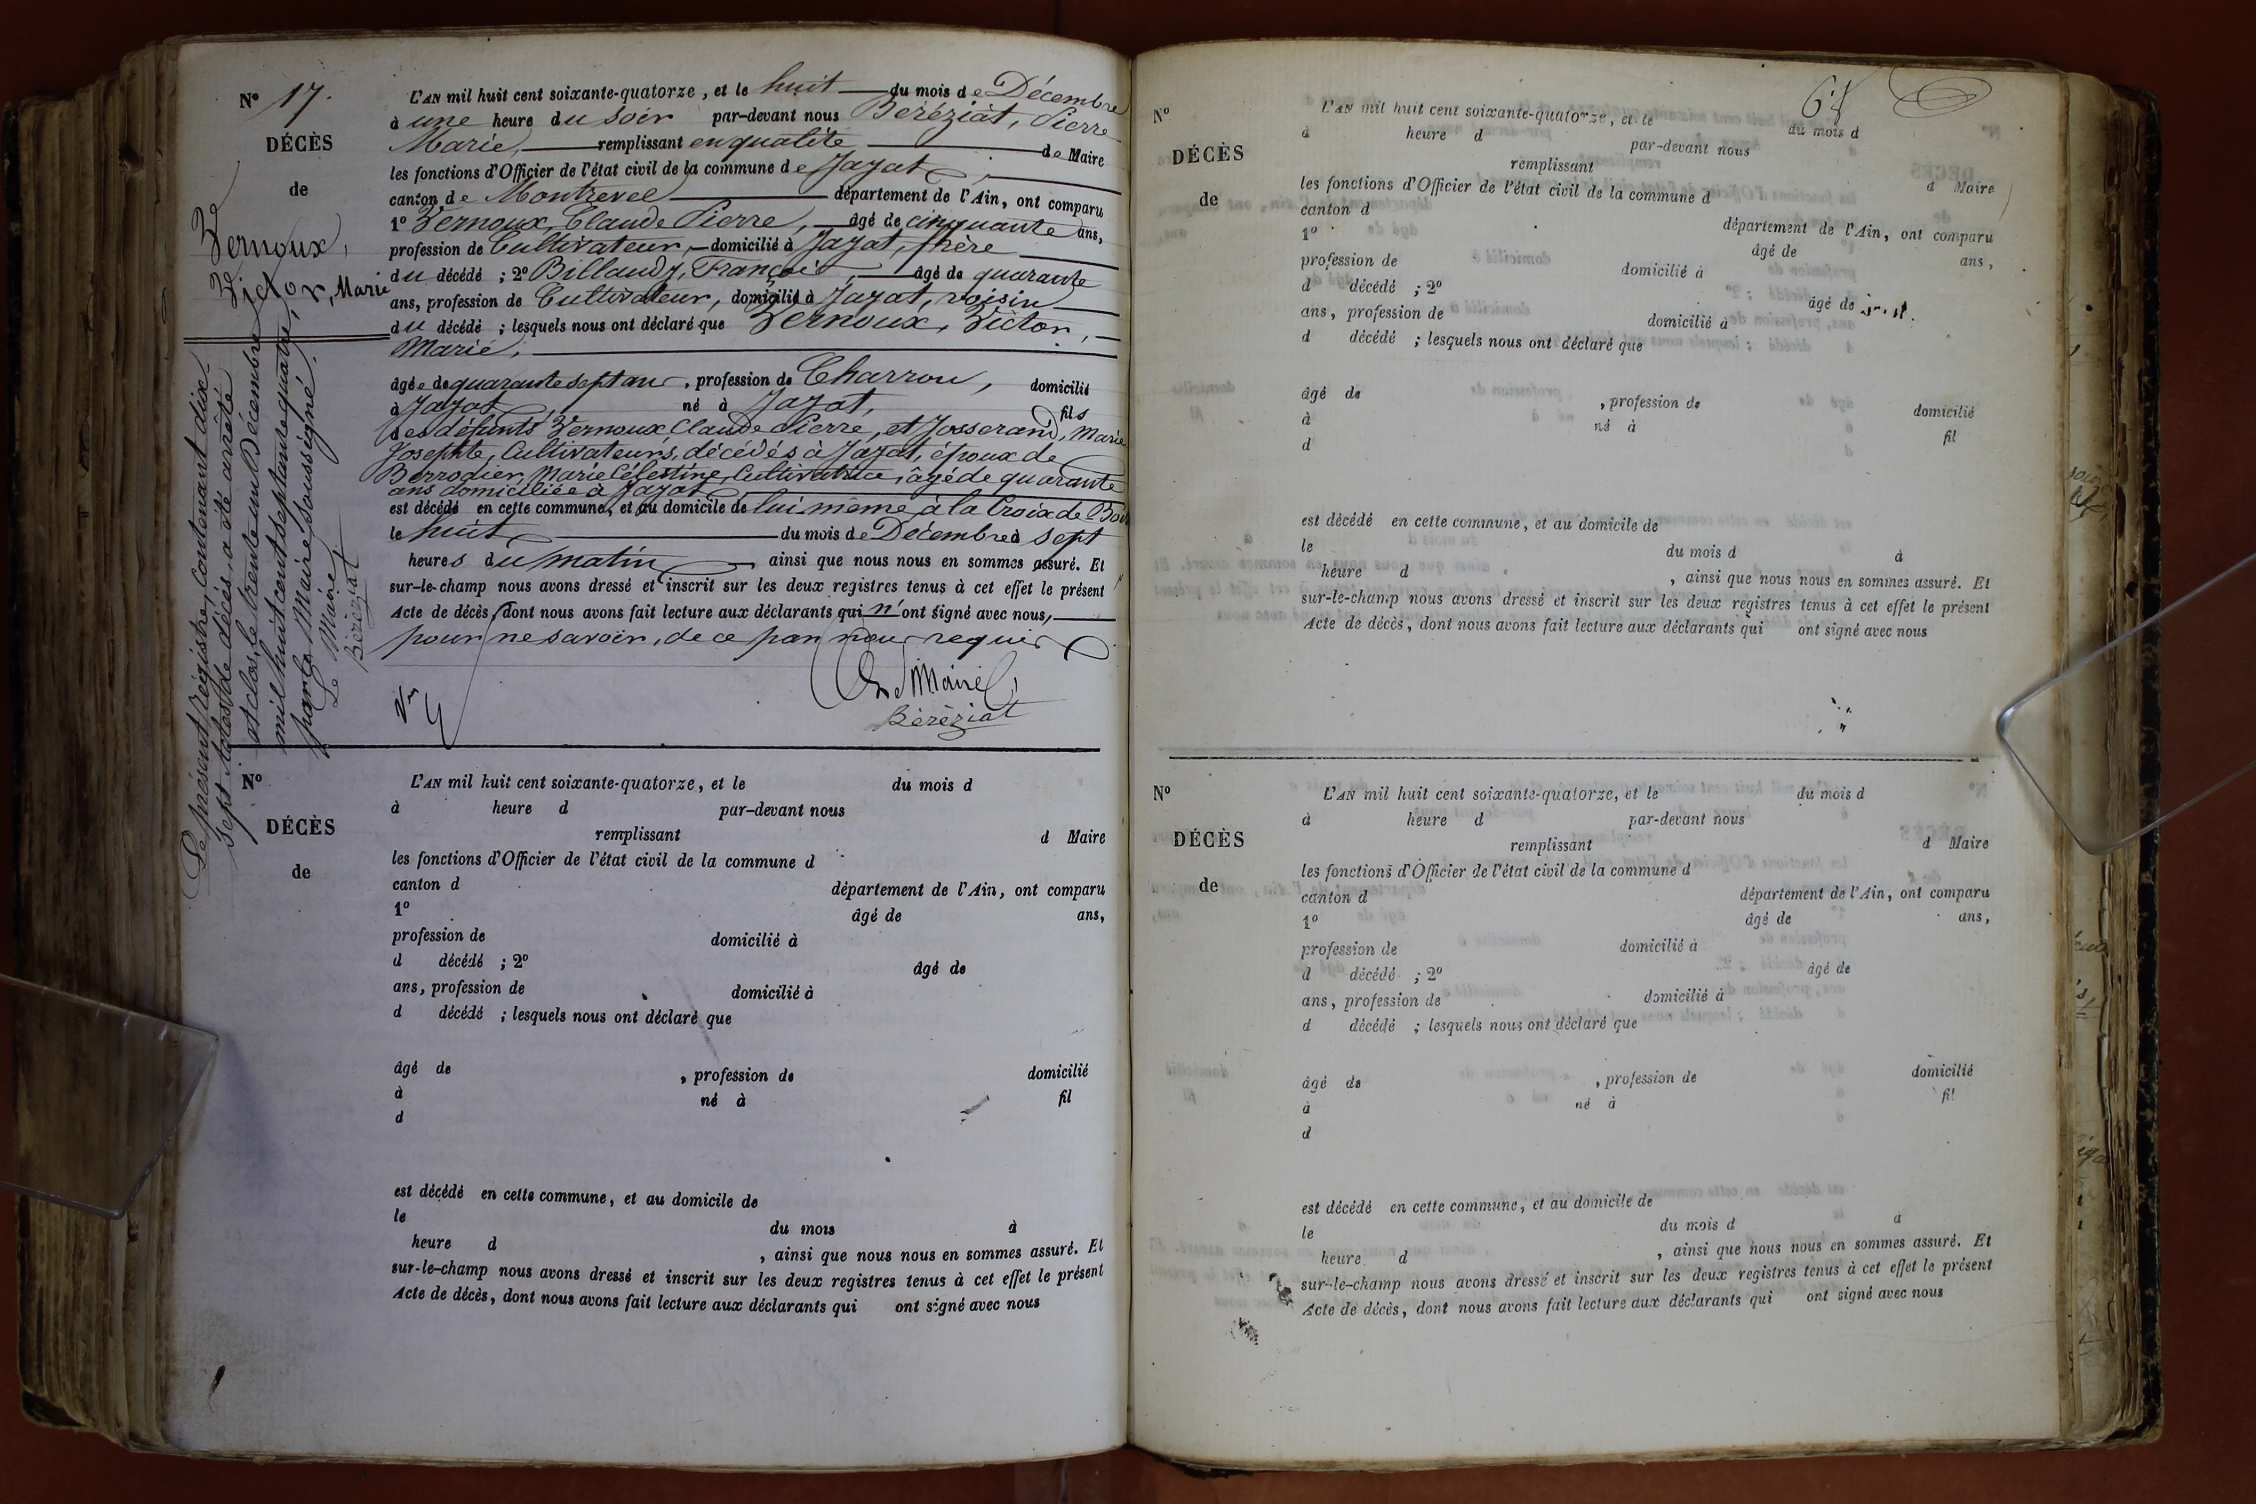 N° 17.
DÉCÈS
de
Vernoux,
Victor, Marie
L'AN mil huit cent soixante-quatorze, et le huit du mois de Décembre
à une heure du soir par-devant nous Béréziat, Pierre
Marie, remplissant en qualité de Maire
les fonctions d'Officier de l'état civil de la commune de Jayat,
canton de Montrevel département de l'Ain, ont comparu
1° Vernoux, Claude Pierre, âgé de cinquante ans,
profession de Cultivateur, domicilié à Jayat, frère
du décédé ; 2° Billaudy, François, âgé de quarante
ans, profession de Cultivateur, domicilié à Jayat, voisin
du décédé ; lesquels nous ont déclaré que Vernoux, Victor,
Marie,
âgé de quarante sept ans, profession de Charron, domicilié
à Jayat, né à Jayat, fils
des défunts Vernoux Claude Pierre, et Josserand, Marie
Josephte, Cultivateurs, décédés à Jayat, époux de
Berrodier, Marie Célestine, Cultivatrice, âgée de quarante
ans domiciliée à Jayat
est décédé en cette commune, et au domicile de lui même à la Croix de Bois
le huit du mois de Décembre à sept
heures du matin ainsi que nous nous en sommes assuré. Et
sur-le-champ nous avons dressé et inscrit sur les deux registres tenus à cet effet le présent
Acte de décès, dont nous avons fait lecture aux déclarants qui n'ont signé avec nous,
pour ne savoir, de ce par nous requis
Le Maire,
Béréziat
Le présent régistre, Contenant dix-
sept Actes de décès, a été arrêté
et clos, le trente un Décembre
mil huit cent septante quatre,
par le Maire soussigné.
Le Maire
Béréziat
N°
DÉCÈS
de
L'AN mil huit cent soixante-quatorze, et le du mois d
à heure d par-devant nous
remplissant d Maire
les fonctions d'Officier de l'état civil de la commune d
canton d département de l'Ain, ont comparu
1° âgé de ans,
profession de domicilié à
d décédé ; 2° âgé de
ans, profession de domicilié à
d décédé ; lesquels nous ont déclaré que
âgé de , profession de domicilié
à né à fil
d
est décédé en cette commune, et au domicile de
le du mois à
heure d , ainsi que nous nous en sommes assuré. Et
sur-le-champ nous avons dressé et inscrit sur les deux registres tenus à cet effet le présent
Acte de décès, dont nous avons fait lecture aux déclarants qui ont signé avec nous
64
N°
DÉCÈS
de
L'AN mil huit cent soixante-quatorze, et le du mois d
à heure d par-devant nous
remplissant d Maire
les fonctions d'Officier de l'état civil de la commune d
canton d département de l'Ain, ont comparu
1° âgé de ans,
profession de domicilié à
d décédé ; 2° âgé de
ans, profession de domicilié à
d décédé ; lesquels nous ont déclaré que
âgé de , profession de domicilié
à né à fil
d
est décédé en cette commune, et au domicile de
le du mois d à
heure d , ainsi que nous nous en sommes assuré. Et
sur-le-champ nous avons dressé et inscrit sur les deux registres tenus à cet effet le présent
Acte de décès, dont nous avons fait lecture aux déclarants qui ont signé avec nous
N°
DÉCÈS
de
L'AN mil huit cent soixante-quatorze, et le du mois d
à heure d par-devant nous
remplissant d Maire
les fonctions d'Officier de l'état civil de la commune d
canton d département de l'Ain, ont comparu
1° âgé de ans,
profession de domicilié à
d décédé ; 2° âgé de
ans, profession de domicilié à
d décédé ; lesquels nous ont déclaré que
âgé de , profession de domicilié
à né à fil
d
est décédé en cette commune, et au domicile de
le du mois d à
heure d , ainsi que nous nous en sommes assuré. Et
sur-le-champ nous avons dressé et inscrit sur les deux registres tenus à cet effet le présent
Acte de décès, dont nous avons fait lecture aux déclarants qui ont signé avec nous